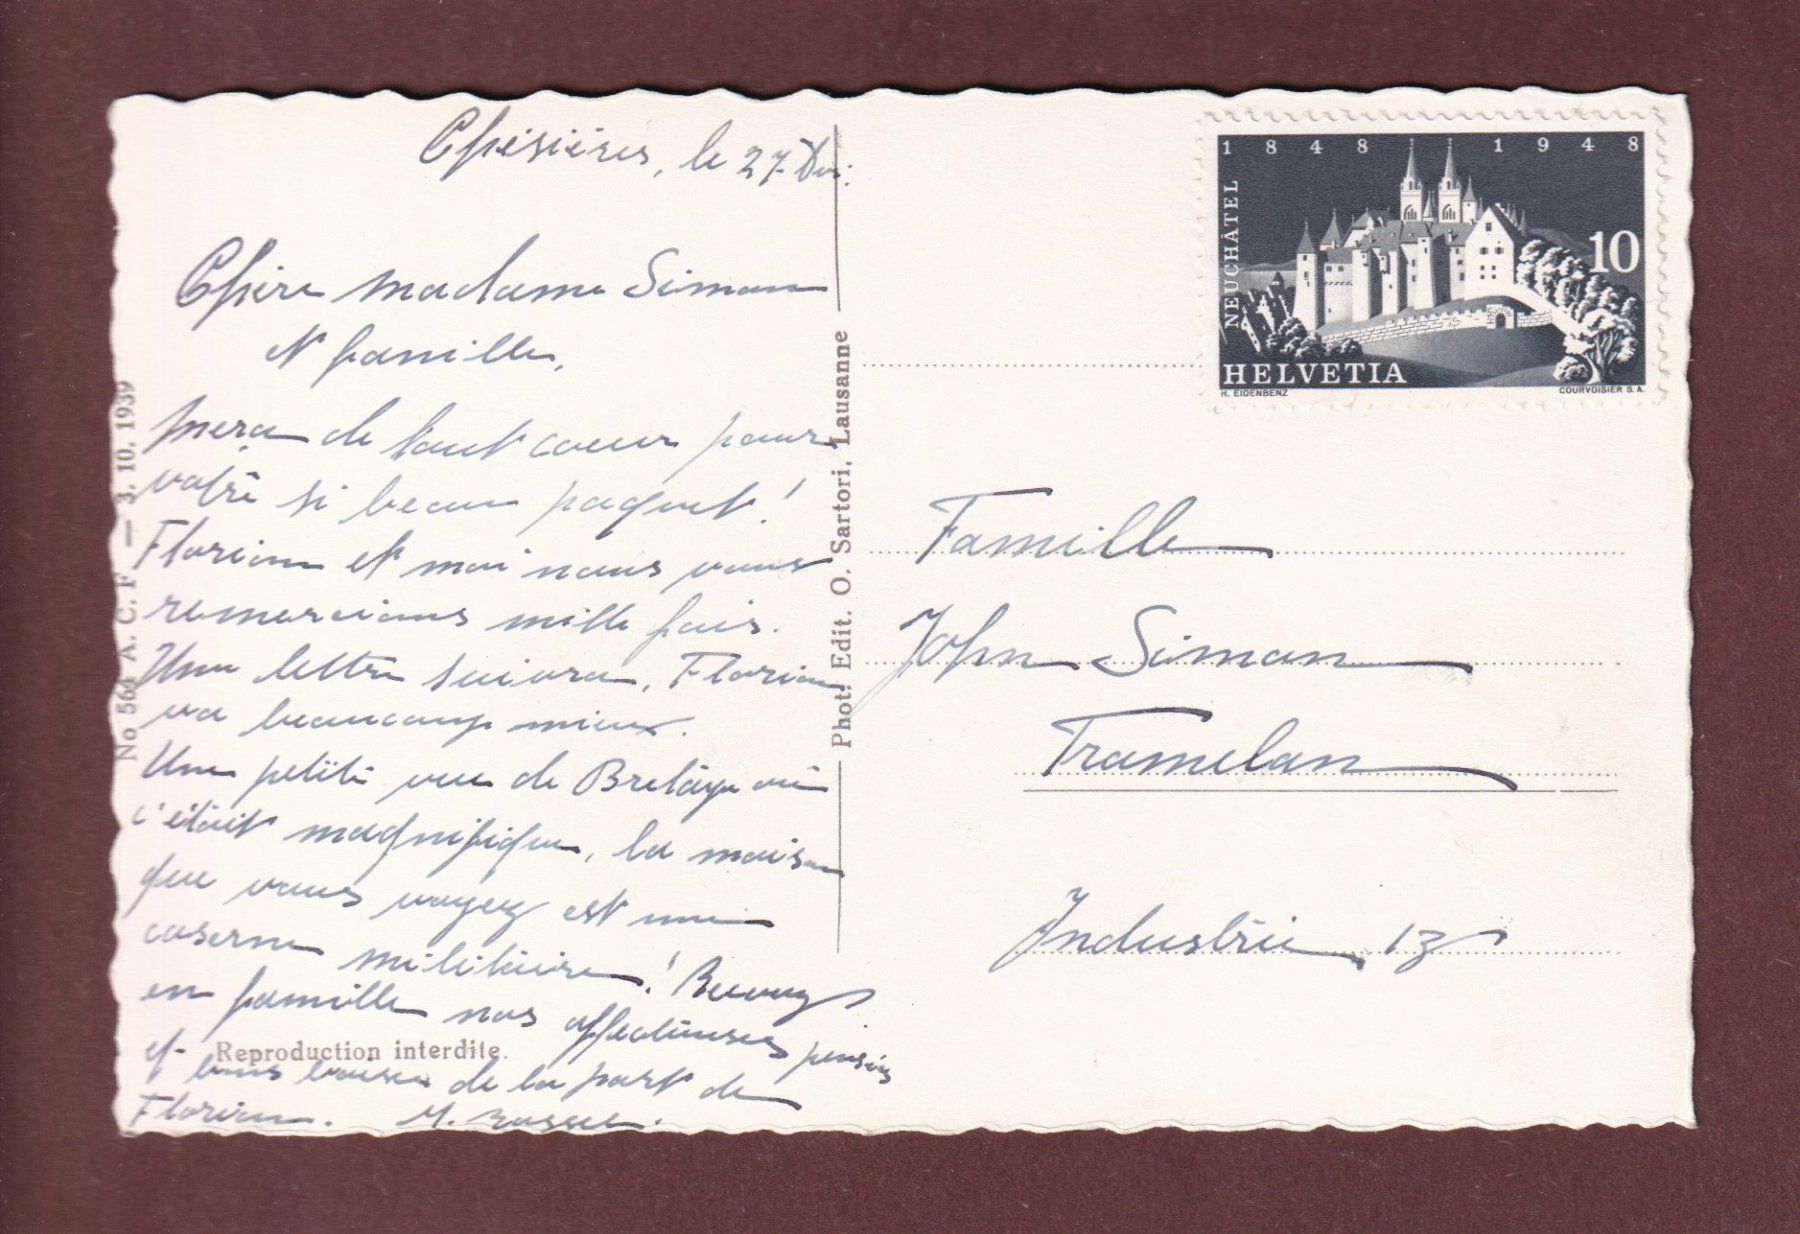 Chésières, le 27 Déc.
Chère madame Simon
et famille,
Merci de tout coeur pour
votre si beau paquet!
Florian et moi nous vous
remercions mille fois.
Une lettre suivra, Florian
va beaucoup mieux.
Une petite vue de Bretaye où
c'était magnifique, la maison
que vous voyez est une
caserne militaire! Recevez
en famille nos affectueuses pensées
et bons baisers de la part de
Florian. M.
Reproduction interdite.
No 564 A. C. F. — 3. 10. 1939
Phot. Edit. O. Sartori, Lausanne
1848 1948
NEUCHÂTEL
10
HELVETIA
H. EIDENBENZ COURVOISIER S. A.
Famille
John Simon
Tramelan
Industrie 13